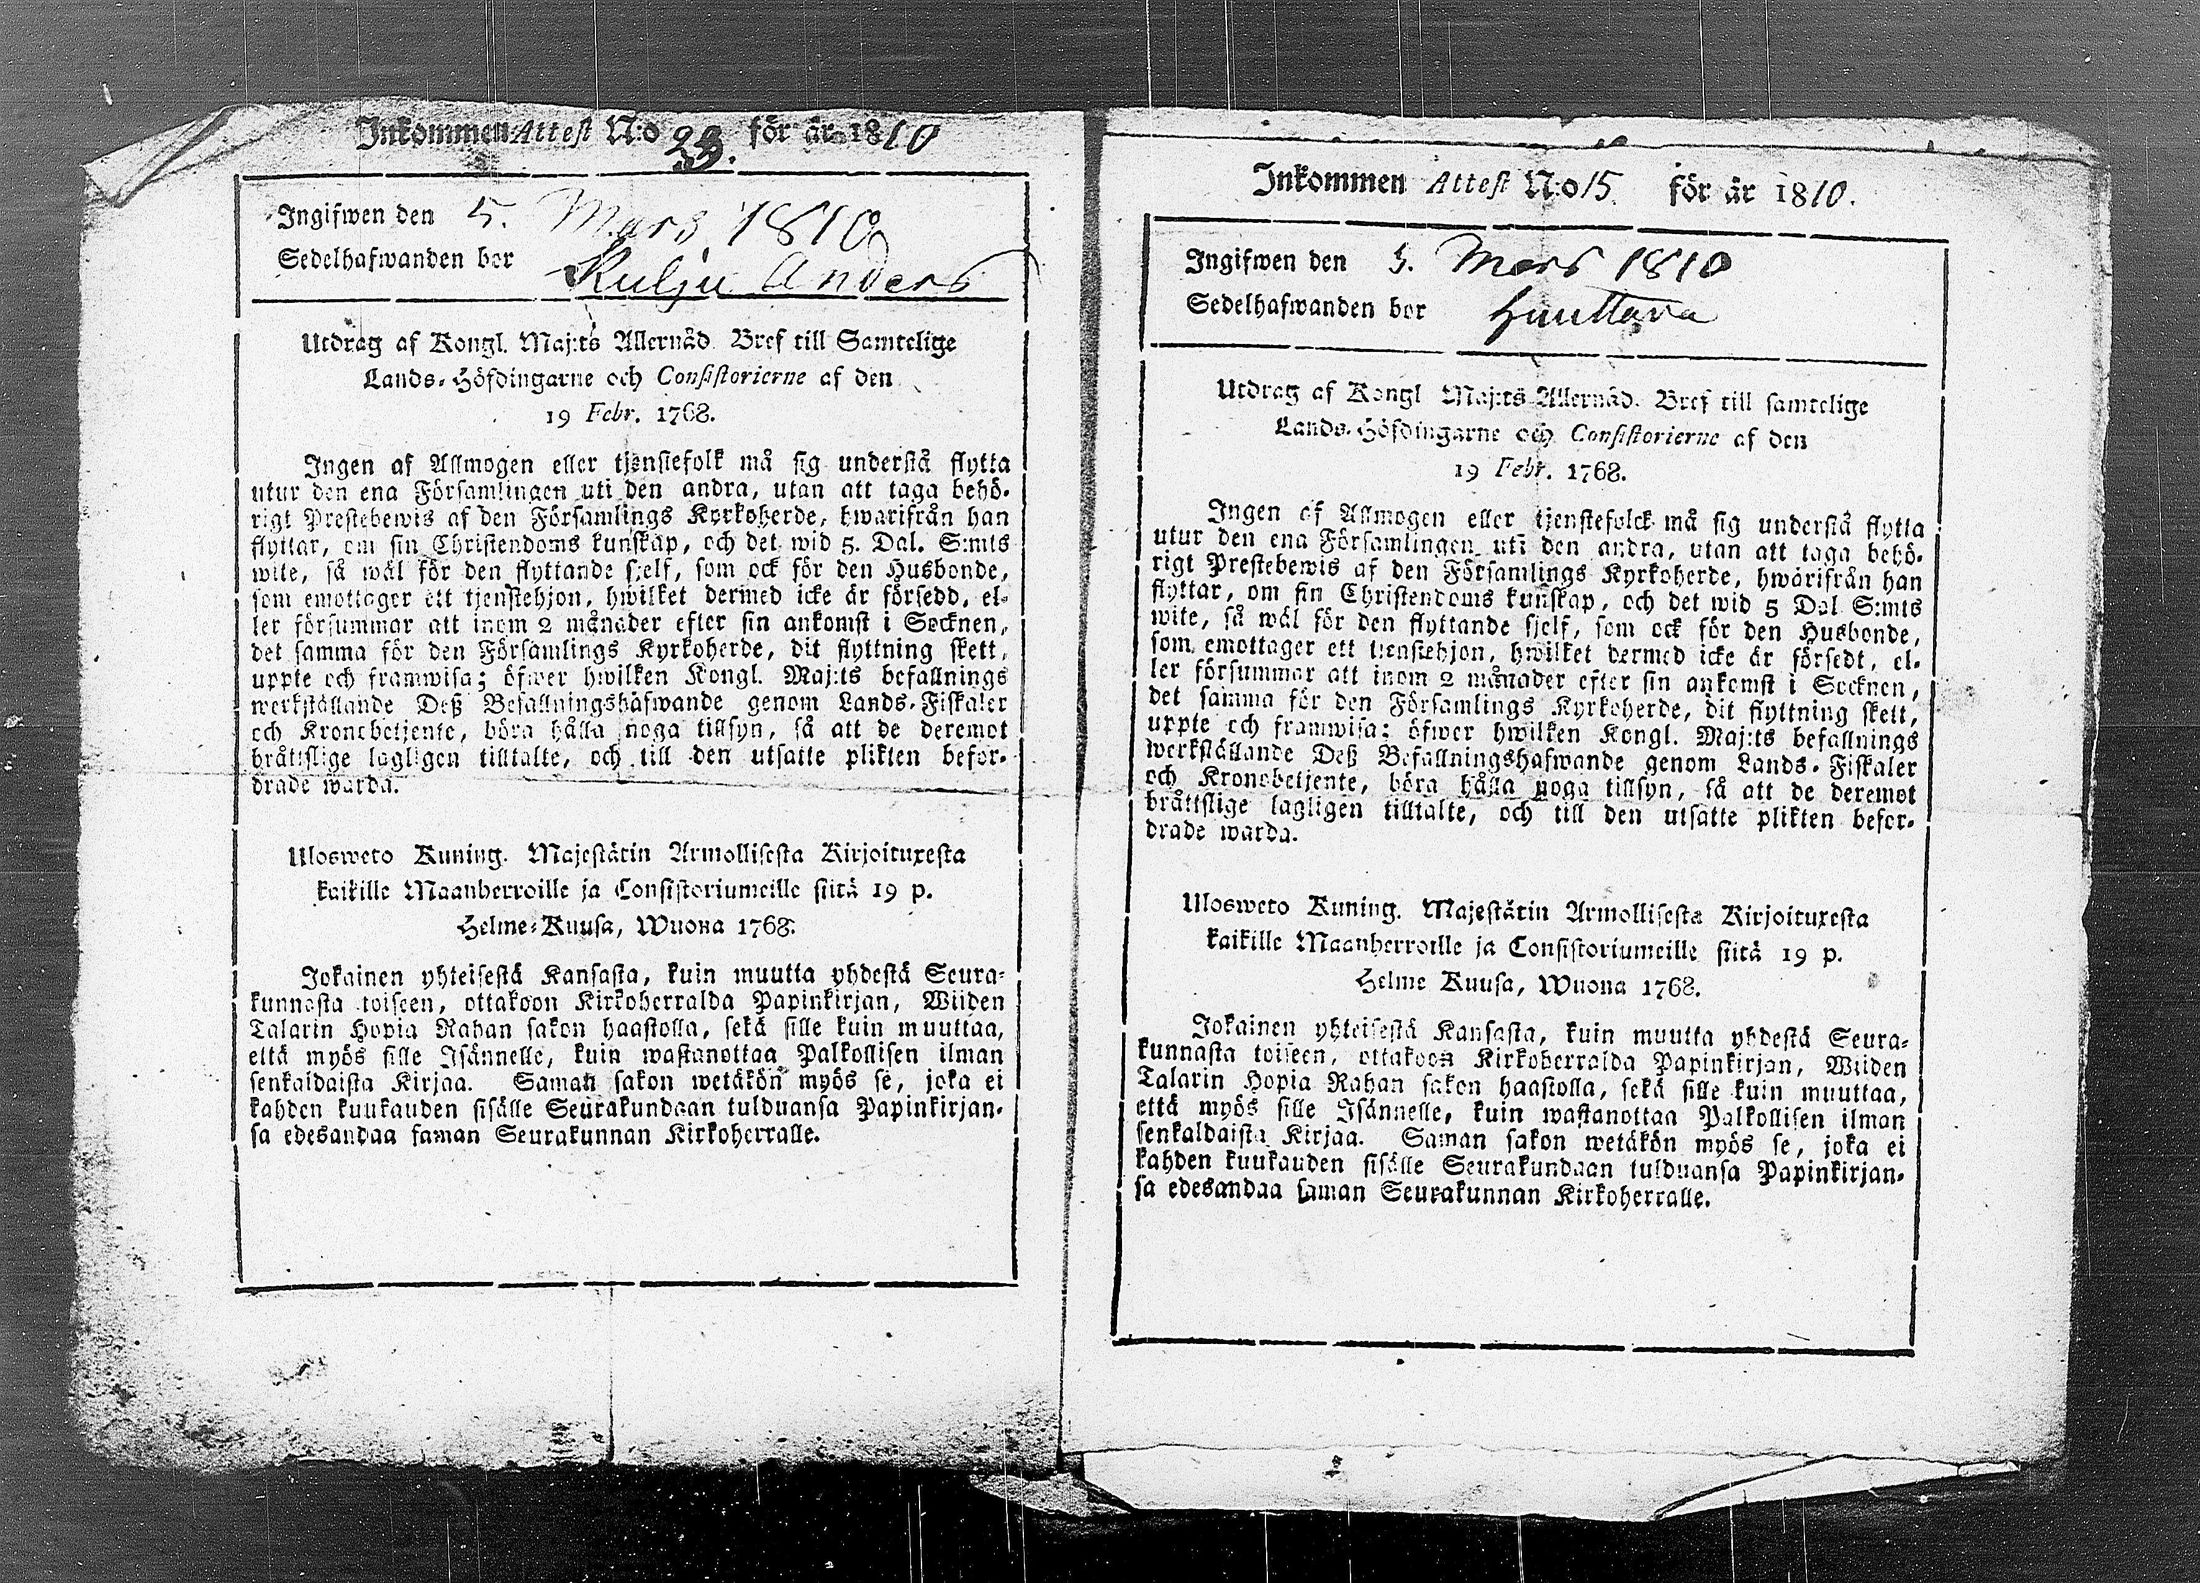 Inkommen Attest N:o 23. för år 1810
Ingifwen den 5. Mars 1810
Sedelhafwanden bor Kulju Anders
Utdrag af Kongl. Maj:ts Allernåd. Bref till Samtelige
Lands-Höfdingarne och Consistorierne af den
19 Febr. 1768.
Ingen af Allmogen eller tjenstefolk må sig understå flytta
utur den ena Församlingen uti den andra, utan att taga behö-
rigt Prestebewis af den Församlings Kyrkoherde, hwarifrån han
flyttar, om sin Christendoms kunskap, och det wid 5. Dal. S:mts
wite, så wäl för den flyttande sjelf, som ock för den Husbonde,
som emottager ett tjenstehjon, hwilket dermed icke är försedd, el-
ler försummar att inom 2 månader efter sin ankomst i Socknen,
det samma för den Församlings Kyrkoherde, dit flyttning skett,
uppte och framwisa; öfwer hwilken Kongl. Maj:ts befallnings
werkställande Deß Befallningshafwande genom Lands-Fiskaler
och Kronobetjente, böra hålla noga tillsyn, så att de deremot
bråttslige lagligen tilltalte, och till den utsatte plikten befor-
drade warda.
Ulosweto Kuning. Majestätin Armollisesta Kirjoituxesta
kaikille Maanherroille ja Consistoriumeille siitä 19 p.
Helme-Kuusa, Wuona 1768.
Jokainen yhteisestä Kansasta, kuin muutta yhdestä Seura-
kunnasta toiseen, ottakoon Kirkoherralda Papinkirjan, Wiiden
Talarin Hopia Rahan sakon haastolla, sekä sille kuin muuttaa,
että myös sille Isännelle, kuin wastanottaa Palkollisen ilman
senkaldaista Kirjaa. Saman sakon wetäkön myös se, joka ei
kahden kuukauden sisälle Seurakundaan tulduansa Papinkirjan-
sa edesandaa saman Seurakunnan Kirkoherralle.
Inkommen Attest N:o 15. för år 1810.
Ingifwen den 5. Mars 1810
Sedelhafwanden bor Huuttava
Utdrag af Kongl Maj:ts Allernåd. Bref till samtelige
Lands-Höfdingarne och Consistorierne af den
19 Febr. 1768.
Ingen af Allmogen eller tjenstefolck må sig understå flytta
utur den ena Församlingen uti den andra, utan att taga behö-
rigt Prestebewis af den Församlings Kyrkoherde, hwarifrån han
flyttar, om sin Christendoms kunskap, och det wid 5 Dal S:mts
wite, så wäl för den flyttande sjelf, som ock för den Husbonde,
som emottager ett tjenstehjon, hwilket dermed icke är försedt, el-
ler försummar att inom 2 månader efter sin ankomst i Socknen,
det samma för den Församlings Kyrkoherde, dit flyttning skett,
uppte och framwisa; öfwer hwilken Kongl. Maj:ts befallnings
werkställande Deß Befallningshafwande genom Lands-Fiskaler
och Kronobetjente, böra hålla noga tillsyn, så att de deremot
bråttslige lagligen tilltalte, och till den utsatte plikten befor-
drade warda.
Ulosweto Kuning. Majestätin Armollisesta Kirjoituxesta
kaikille Maanherroille ja Consistoriumeille siitä 19 p.
Helme Kuusa, Wuona 1768.
Jokainen yhteisestä Kansasta, kuin muutta yhdestä Seura-
kunnasta toiseen, ottakoon Kirkoherralda Papinkirjan, Wiiden
Talarin Hopia Rahan sakon haastolla, sekä sille kuin muuttaa,
että myös sille Isännelle, kuin wastanottaa Palkollisen ilman
senkaldaista Kirjaa. Saman sakon wetäkön myös se, joka ei
kahden kuukauden sisälle Seurakundaan tulduansa Papinkirjan-
sa edesandaa saman Seurakunnan Kirkoherralle.